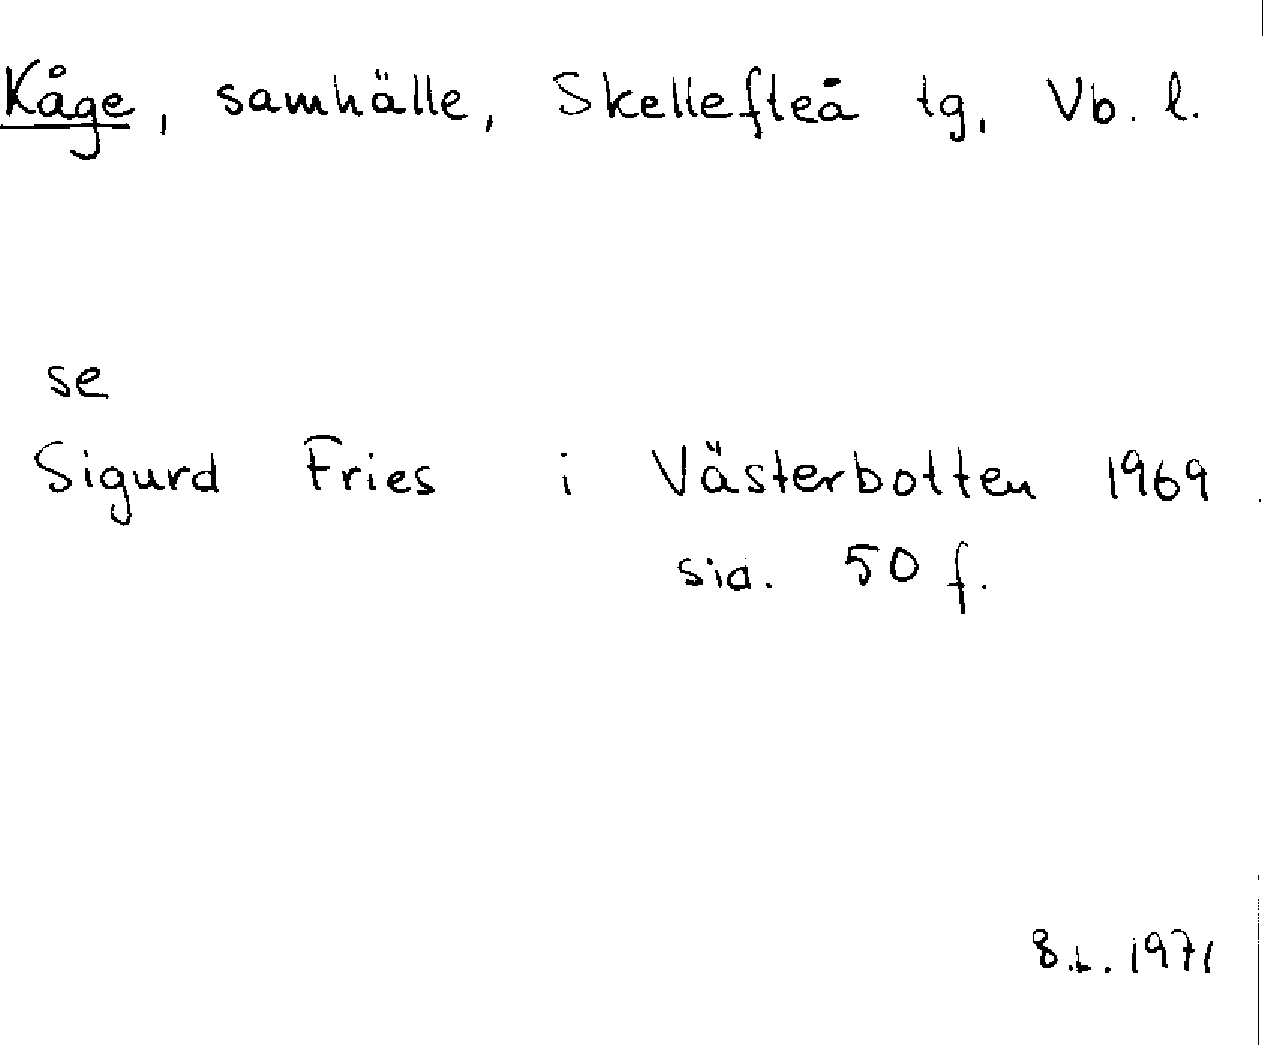 Kåge, samhälle, Skellefteå tg, Vb. l.
se
Sigurd Fries i Västerbotten 1969
sid. 50 f.
1971